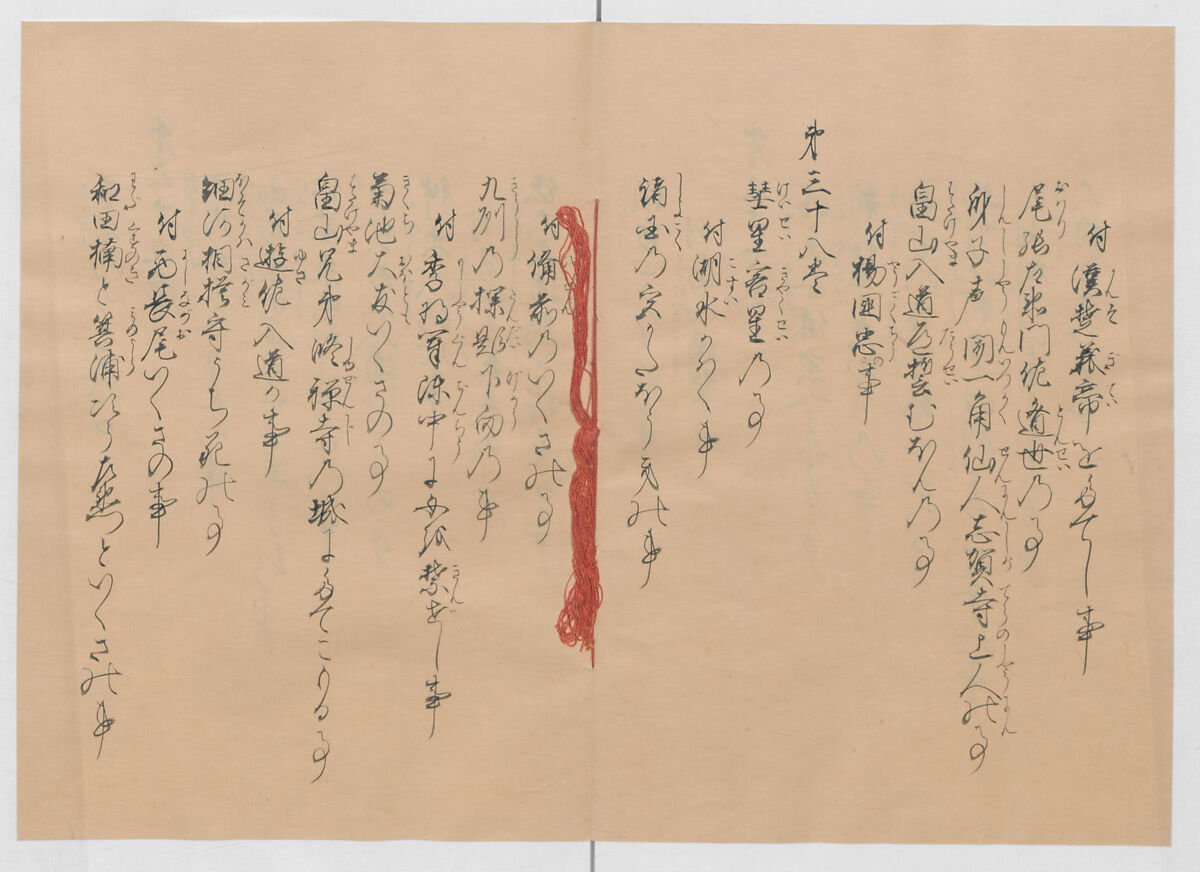 付漢楚義帝をたてし事
尾張左衛門佐遁世の事
身子声聞一角仙人志賀寺上人の事
畠山入道道誓むほんの事
付楊國忠か事
第三十八巻
彗星客星の事
付湖水かはく事
諸国の宮かたほうきの事
付備前のいくさの事
九州の探題下向の事
付李将軍陣中に女を禁せし事
菊池大友いくさの事
畠山兄弟修禅寺の城にたてこもる事
付遊佐入道か事
細河相模守うち死の事
付西長尾いくさの事
和田楠と箕浦次郎左衛門といくさの事